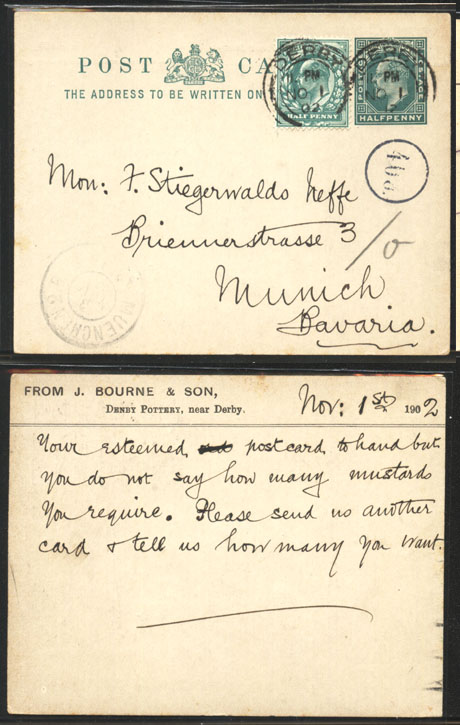 POST CA
THE ADDRESS TO BE WRITTEN ON
DERBY
PM
NO 1
02
HALFPENNY
DERBY
PM
NO 1
HALFPENNY
40a
Mon: F. Stiegerwalds Neffe
Briennerstrasse 3
/o
Munich
Bavaria.
MUENCHEN
FROM J. BOURNE & SON,
DENBY POTTERY, near Derby.
Nov: 1st 1902
Your esteemed postcard to hand but
you do not say how many mustards
you require. Please send us another
card & tell us how many you want.